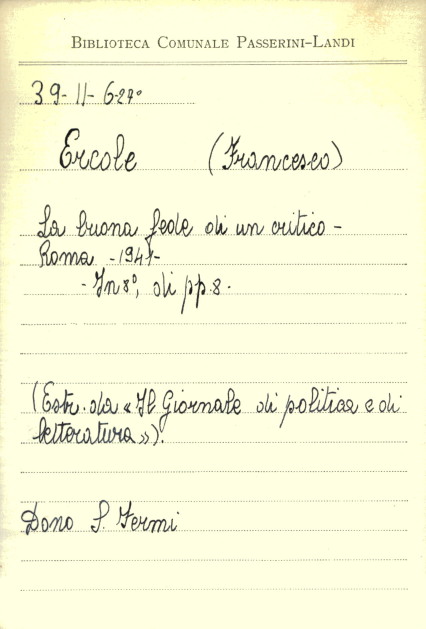 BIBLIOTECA COMUNALE PASSERINI-LANDI
39-11-6-27°
Ercole (Francesco)
La buona fede di un critico -
Roma - 1941-
- In 8°, di pp. 8 -
(Estr. da «Il Giornale di politica e di
letteratura»).
Dono S. Fermi